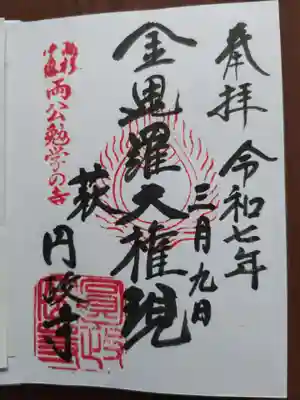 奉拝
令和七年
三月九日
金毘羅大権現
萩
円政寺
両公勉学の寺